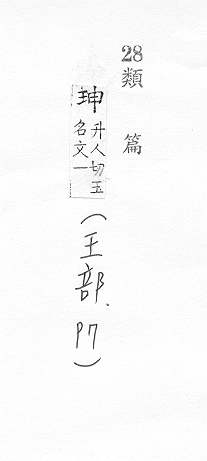 28類 篇
珅 升人切玉名文一(王部、P7)